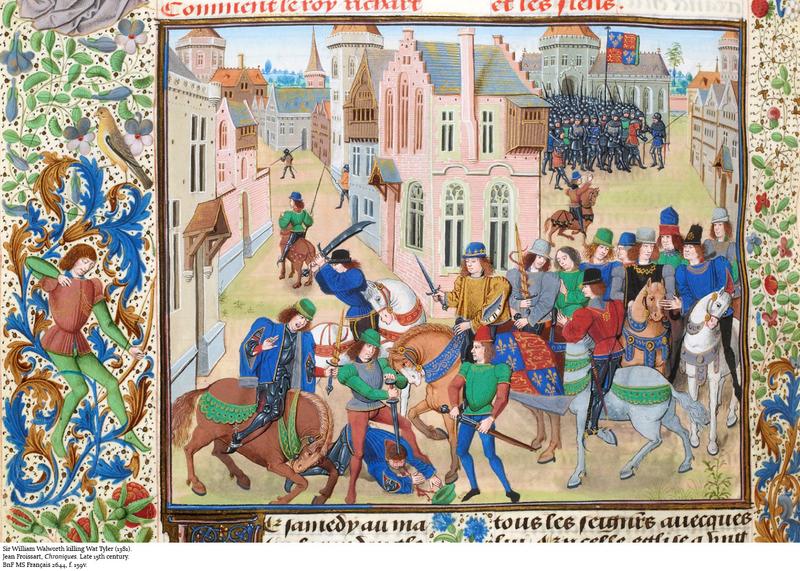 Comment le roy richart et les siens.
Le samedy au ma
tous les seignrs avecques
Sir William Walworth killing Wat Tyler (1381).
Jean Froissart, Chroniques. Late 15th century.
BnF MS Français 2644, f. 159v.